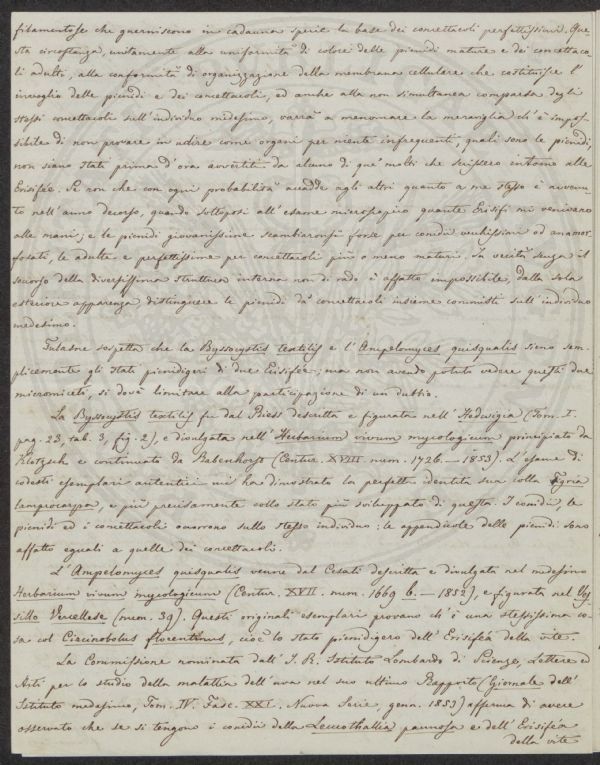 filamentose che guerniscono in cadauna specie la base dei concettacoli perfettissimi. Que-
sta circostanza, unitamente alla uniformità di colore delle picnidi mature e dei concettaco-
li adulti, alla conformità di organizzazione della membrana cellulare che costituisce l'
invoglio delle picnidi e dei concettacoli, ed anche alla non simultanea comparsa degli
stessi concettacoli sull'individuo medesimo, varrà a menomare la meraviglia ch'è impos-
sibile di non provare in udire come organi per niente infrequenti, quali sono le picnidi,
non siano stati prima d'ora avvertiti da alcuno di que' molti che scrissero intorno alle
Erisifee. Se non che con ogni probabilità accadde agli altri quanto a me stesso è avvenu-
to nell'anno decorso, quando sottoposi all'esame microscopico quante Erisifi mi venivano
alle mani; e le picnidi giovanissime scambiaronsi forse per conidi vecchissimi od anamor-
fosati, le adulte e perfettissime per concettacoli più o meno maturi. In verità senza il
soccorso della diversissima struttura interna non di rado è affatto impossibile, dalla sola
esteriore apparenza, distinguere le picnidi da' concettacoli insieme commisti sull'individuo
medesimo.
Tulasne sospetta che la Byssocystis textilis e l'Ampelomyces quisqualis sieno sem-
plicemente gli stati picnidigeri di due Erisifee; ma non avendo potuto vedere questi due
micromiceti, si dovè limitare alla participazione di un dubbio.
La Byssocystis textilis fu dal Riess descritta e figurata nell'Hedwigia (Tom. I.
pag. 23, tab. 3, fig. 2), e divulgata nell'Herbarium vivum mycologicum principiato da
Klotzsch e continuato da Rabenhorst (Centur. XVIII num. 1726. — 1853). L'esame di
codesti esemplari autentici mi ha dimostrato la perfetta identità sua colla Tigria
lamprocarpa, e più precisamente collo stato più sviluppato di questa. I conidi, le
picnidi ed i concettacoli occorrono sullo stesso individuo: le appendicole delle picnidi sono
affatto eguali a quelle dei concettacoli.
L'Ampelomyces quisqualis venne dal Cesati descritta e divulgata nel medesimo
Herbarium vivum mycologicum (Centur. XVII. num. 1669 b. — 1852), e figurata nel Ves-
sillo Vercellese (num. 39). Questi originali esemplari provano ch'è una stessissima co-
sa col Cicinobolus florentinus, cioè lo stato picnidigero dell'Erisifea della vite.
La Commissione nominata dall'I. R. Istituto Lombardo di Scienze, Lettere ed
Arti per lo studio della malattia dell'uva nel suo ultimo Rapporto (Giornale dell'
Istituto medesimo, Tom. IV. Fasc. XXI. Nuova Serie, genn. 1853) afferma di avere
osservato che se si tengono i conidi della Leucothallia pannosa e dell'Erisifea
della vite